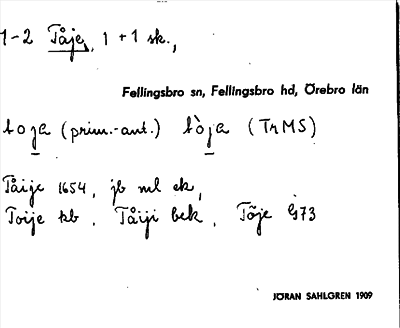 1-2 Tåje, 1 + 1 sk.,
Fellingsbro sn, Fellingsbro hd, Örebro län
toja (prim.-ant.) tòja (TrMS)
Tåije 1654, jb ml ek,
Toije kb. Tåiji bek. Töje G73
JÖRAN SAHLGREN 1909